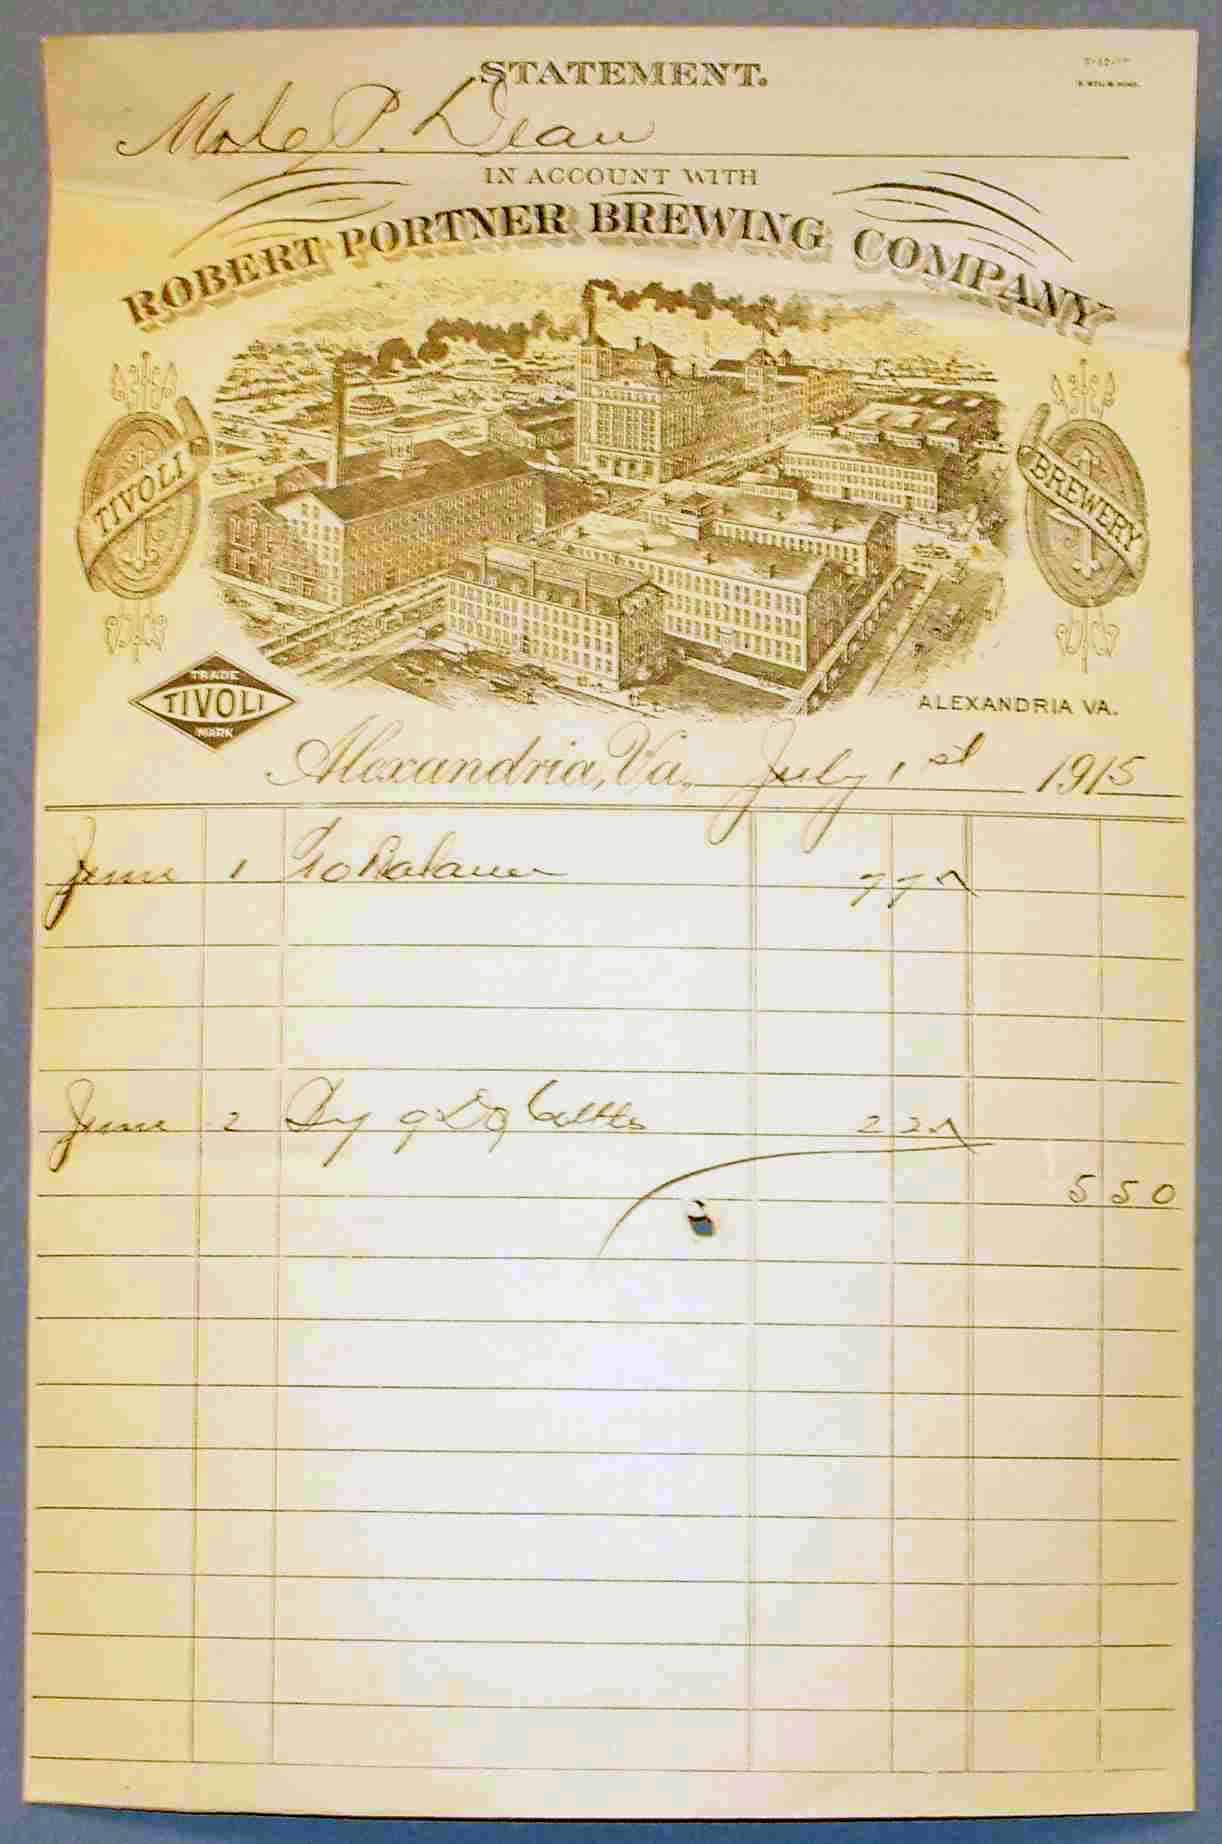 STATEMENT.
P. Dean
IN ACCOUNT WITH
ROBERT PORTNER BREWING COMPANY
TIVOLI
BREWERY
TRADE
TIVOLI
MARK
ALEXANDRIA VA.
Alexandria, Va. July 1st 1915
June 1 To Balance 7 75
June 2 By 9 Dz bottles 2 25
5 50